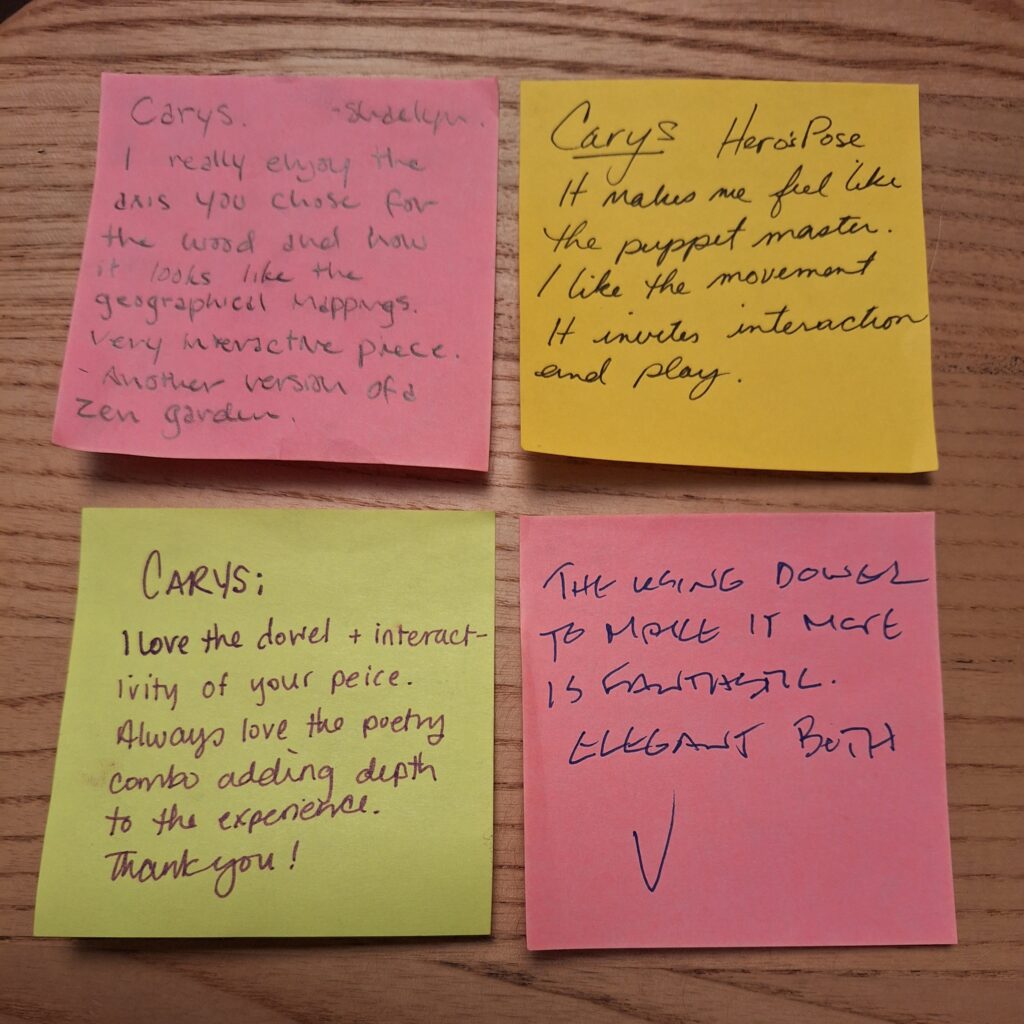 Carys. -Shaelyn.
I really enjoy the
axis you chose for
the wood and how
it looks like the
geographical mappings.
very interactive piece.
- Another version of a
zen garden.
Carys Hero's Pose
It makes me feel like
the puppet master.
I like the movement
It invites interaction
and play.
CARYS;
I love the dowel + interact-
ivity of your peice.
Always love the poetry
combo adding depth
to the experience.
Thank you!
THE USING DOWEL
TO MAKE IT MOVE
IS FANTASTIC.
ELEGANT BOTH
V